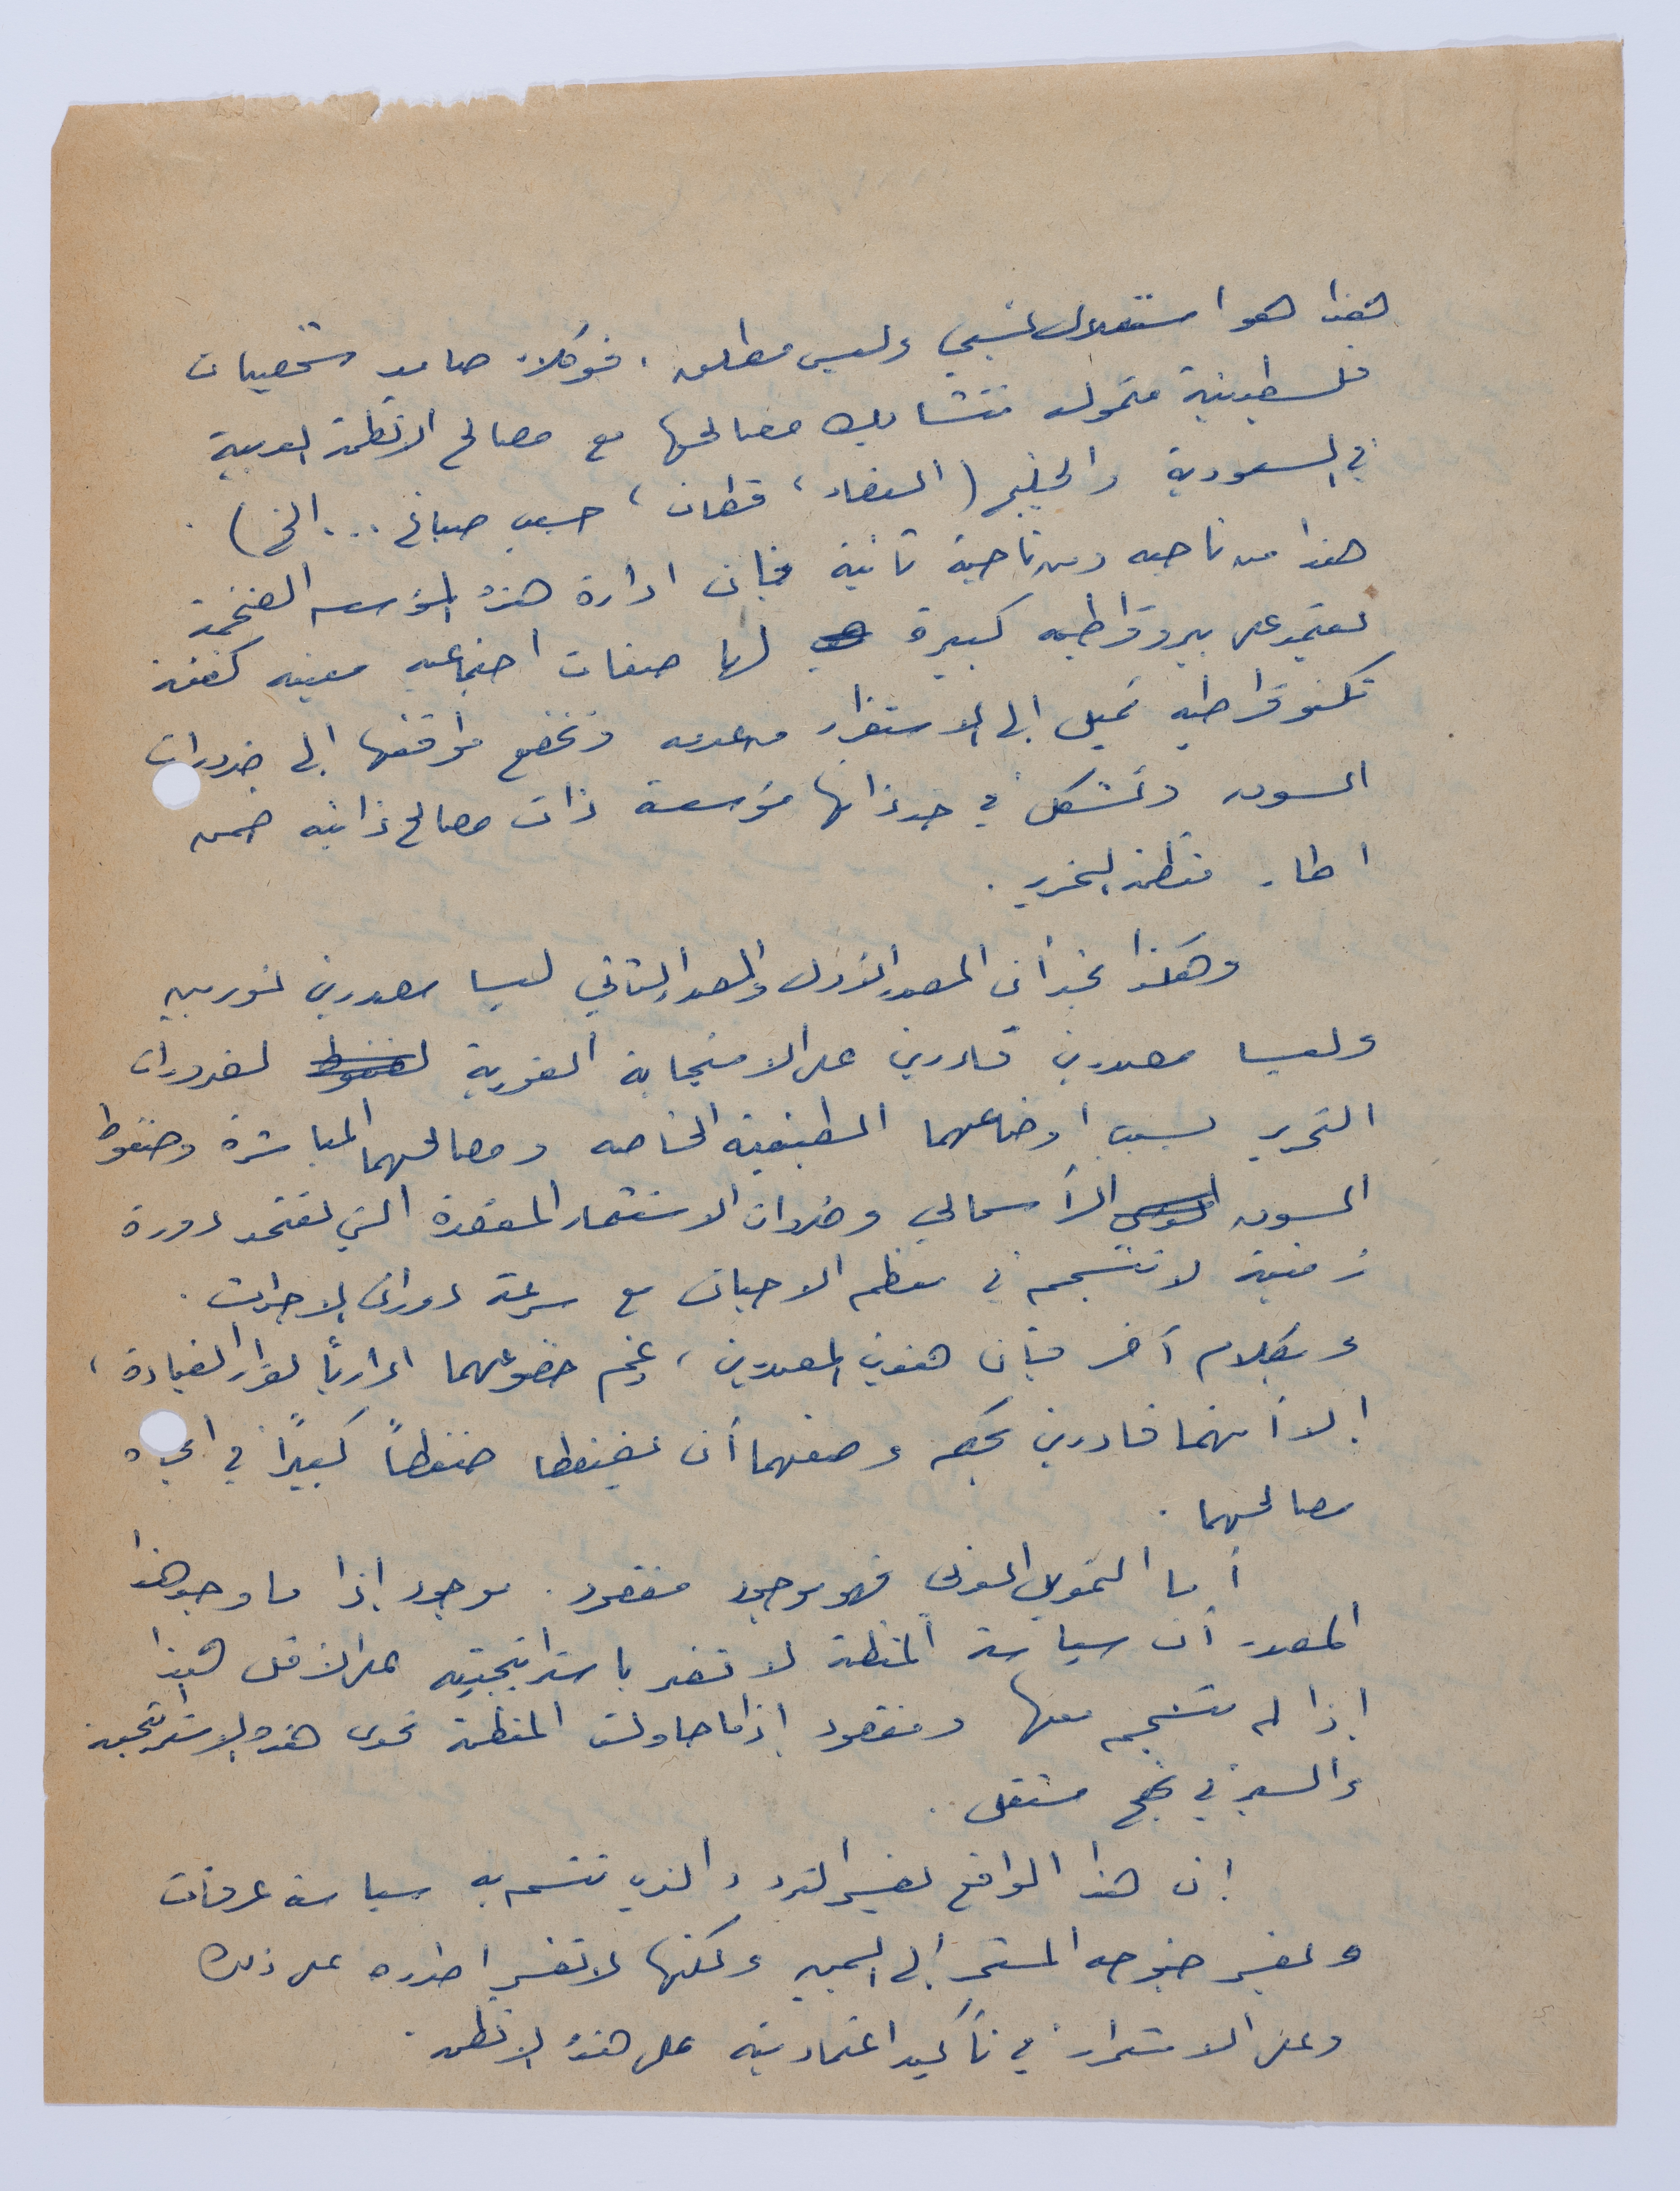 هذا هو استقلال نسبي وليس مطلق. فوكلاء صامد شخصيات
فلسطينية متمولة تتشابك مصالحها مع مصالح الانظمة العربية
في السعودية والخليج ( ، قطان، حسيب صباغ ... الخ).
هذا من ناحيه ومن ناحية ثانية فإن ادارة هذه المؤسسه الضخمة
تعتمد على بيروقراطيه كبيرة لها صفات اجتماعيه معينه كفئة
تكنوقراطيه تميل إلى الاستقرار وتخضع مواقفها إلى ضرورات
السوق وتشكل في حد ذاتها مؤسسة ذات مصالح ذاتيه ضمن
اطار منظمة التحرير.
وهكذا نجد أن المصدر الأول والمصدر الثاني ليسا مصدرين ثوريين
وليسا مصدرين قادرين على الاستجابة الفورية لضرورات
التحرير بسبب أوضاعهما الطبقية الخاصه ومصالحهما المباشرة وضغوط
السوق الرأسمالي وضروات الاستثمار المعقدة التي تعتمد دورة
زمنية لا تنسجم في معظم الاحيان مع سرعة دوران الاحداث.
وبكلام آخر فإن هذين المصدرين، رغم خضوعهما اداريًا لقرار القيادة،
إلا أنهما قادرين بحكم وضعهما أن يضغطا ضغطاً كبيرًا في اتجاه
مصالحهما.
أما التمويل العربي فهو موجود مفقود. موجود إذا ما وجد هذا
المصدر أن سياسة المنظمة لا تضر باستراتيجيته على الأقل هذا
إذا لم تنسجم معها ومفقود إذا ما حاولت المنظمة تحدي هذه الاستراتيجية
والسير في نهج مستقل..
إن هذا الواقع يفسر التردد والذي تتسم به سياسة عرفات
ويفسر جنوحه المستمر إلى اليمين ولكنها لا تفسر اصراره على ذلك
وعلى الاستمرار في تأكيد اعتماديته على هذه الانظمه.